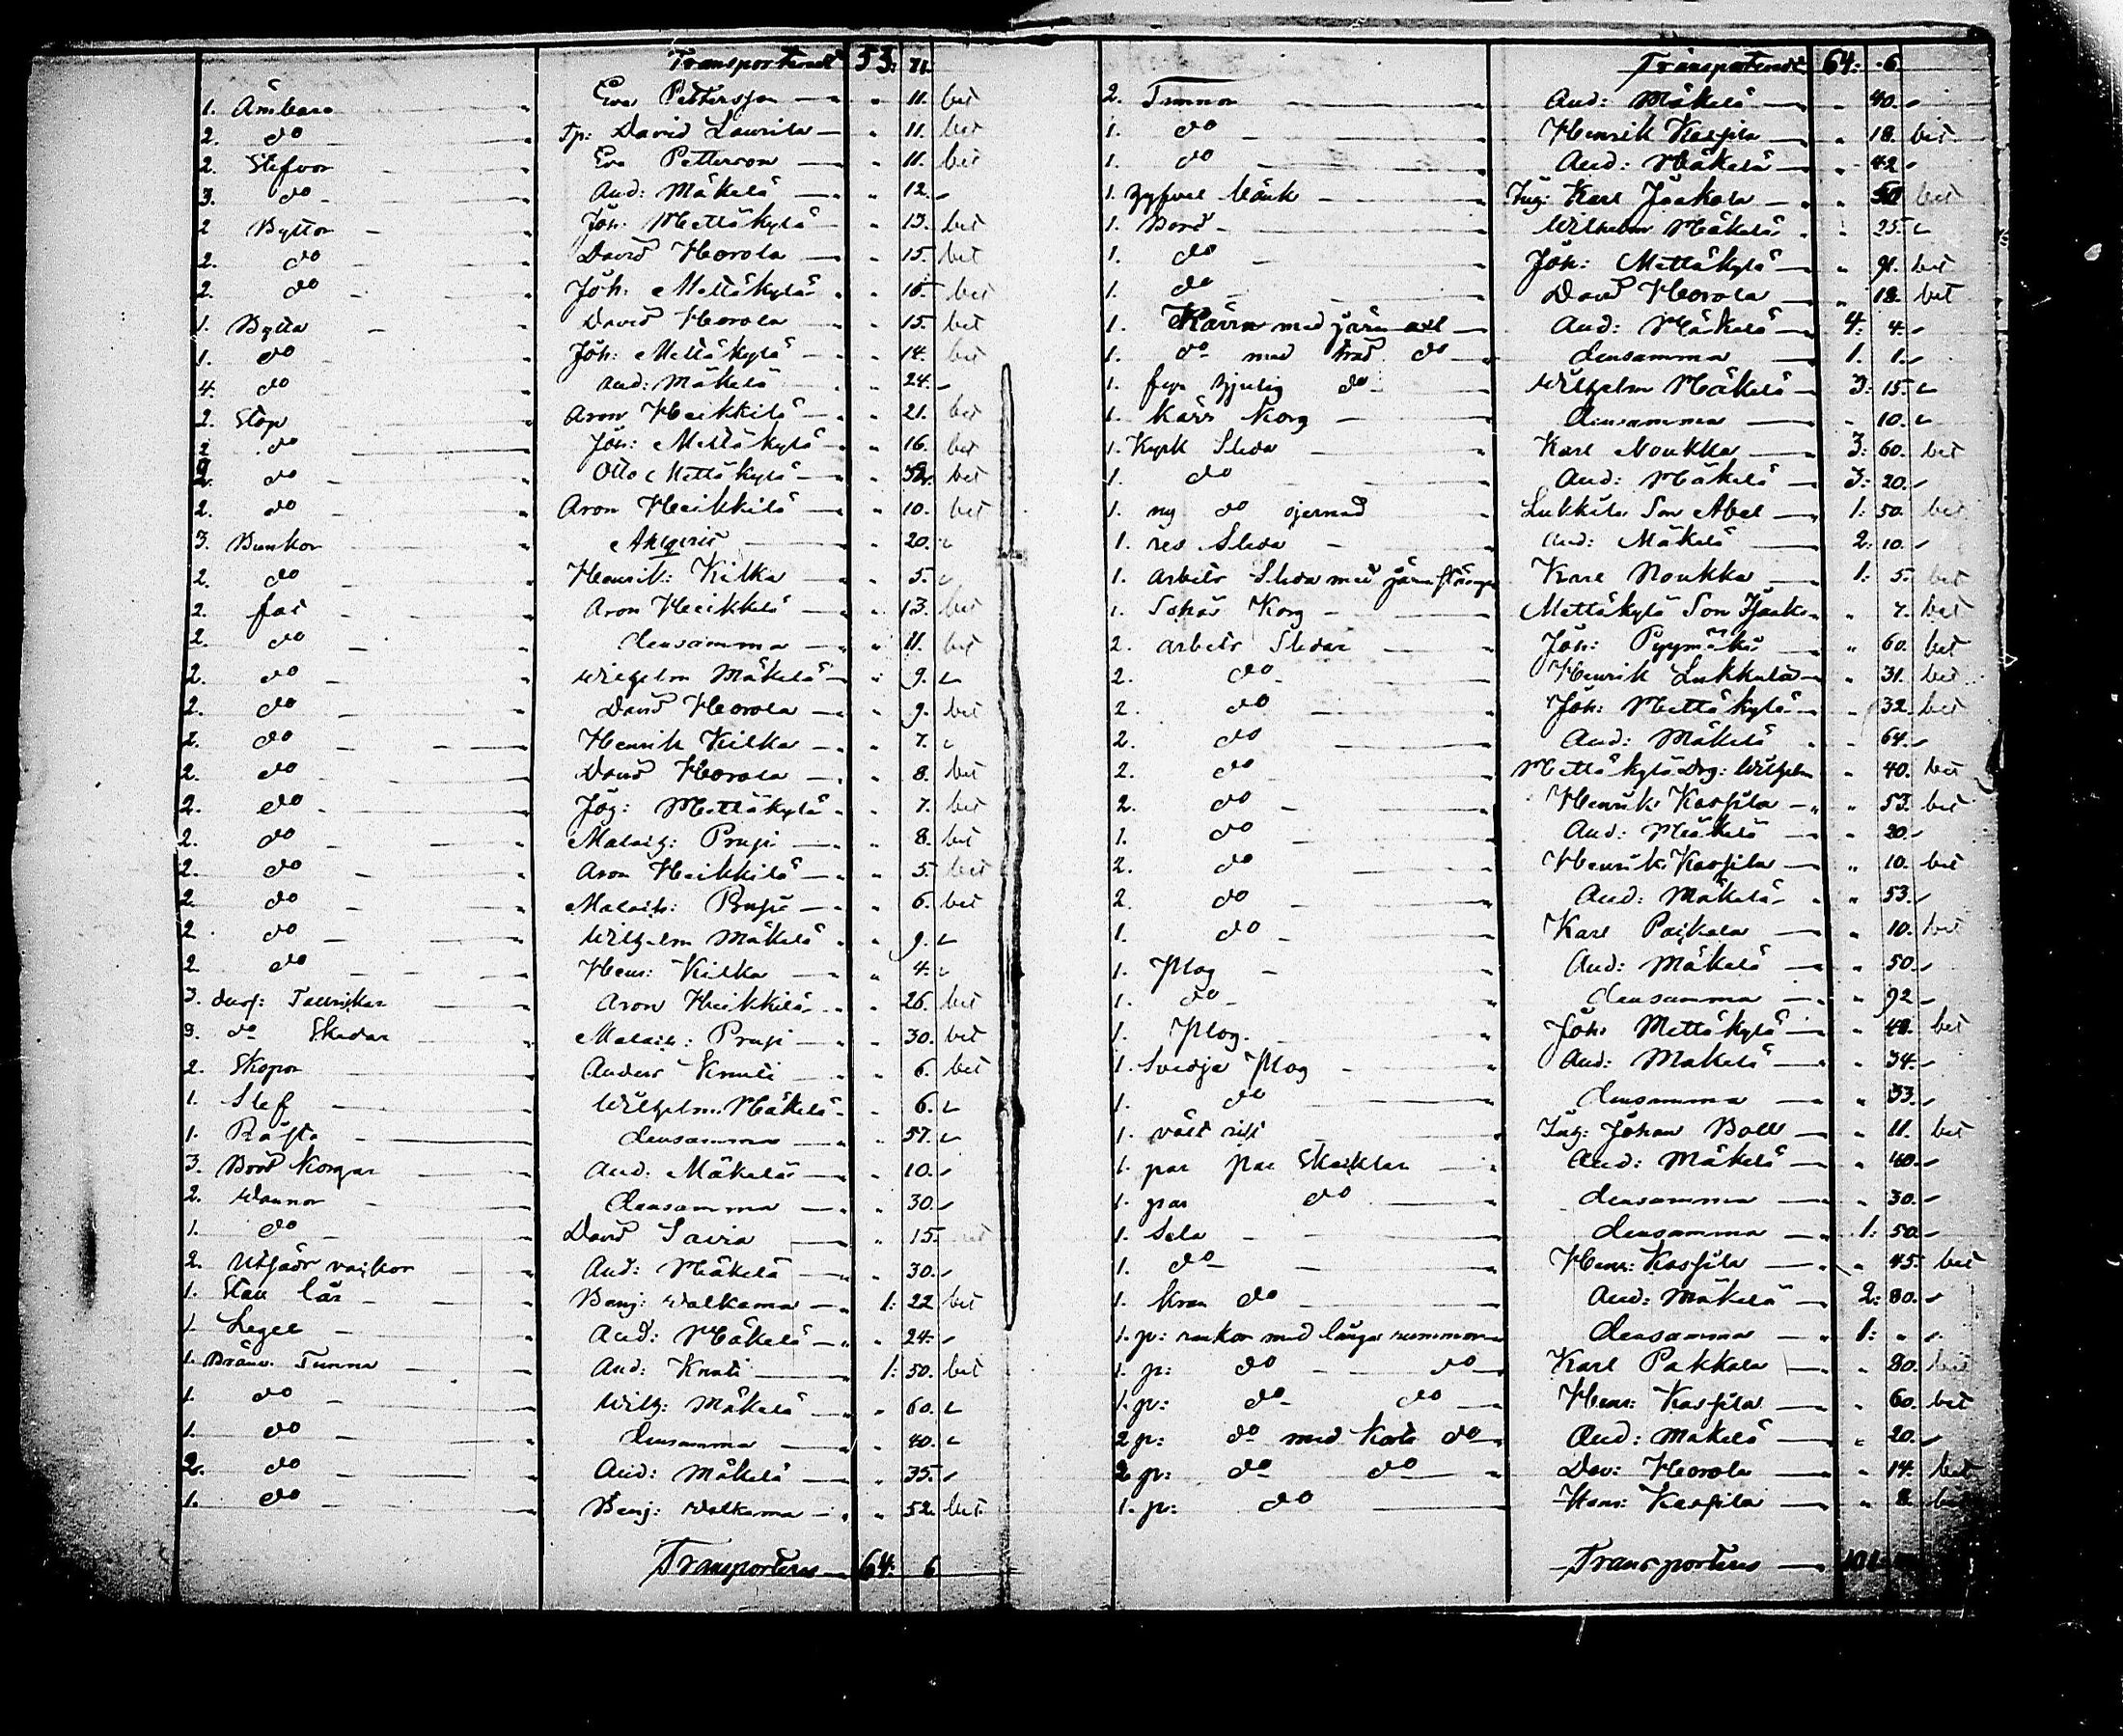 Transporteradt 53: 71.
1. Ämbare Eva Pettersson " 11. bet
2. do Tp: David Laurila " 11. bet
2. Stefvor Eva Petterson " 11. bet
3. do And: Mäkelä " 12.
2 Byttor Joh: Mettäkylä " 13. bet
2. do David Horola " 15. bet
2. do Joh. Mettäkylä " 15 bet
1. Bytta David Horola " 15. bet
1. do Joh: Mettäkylä " 14. bet
4. do And: Mäkelä " 24.
2. Stop Aron Heikkilä " 21. bet
2 do Joh: Mettäkylä " 16. bet
2. do Otto Mettäkylä " bet
2. do Aron Heikkilä " 10. bet
3. Bunkor " 20.
2. do Henrik: Kilka " 5.
2. fat Aron Heikkilä " 13. bet
2. do densamma " 11. bet
2. do Wilhelm Mäkelä " 9.
2. do David Horola " 9. bet
2. do Henrik Kilka " 7.
2. do David Horola " 8. bet
2. do Joh: Mettäkylä " 7. bet
2. do Malach: Pruji " 8. bet
2. do Aron Heikkilä " 5. bet
2. do Malach: Pruji " 6. bet
2. do Wilhelm Mäkelä " 9.
2 do Hen: Kilka " 4.
3. duss: Tallrikar Aron Heikkilä " 26. bet
3. do Skedar Malach: Pruji " 30. bet
2. Skopor Anders Knuti " 6. bet
1. Slef Wilhelm Mäkelä " 6.
1. densamma " 57.
3. Bröd Korgar And. Mäkelä " 10.
2. Wannor densamma " 30.
1. do David " 15.
2. And: Mäkelä " 30.
1. Stau lår Benj: Walkama 1: 22 bet
1. Legel And: Mäkelä " 24.
1. Bränv. Tunna And: Knuti 1: 50. bet
1. do Wilh: Mäkelä " 60.
1. do densamma " 40.
2. do And: Mäkelä " 35.
1. do Benj: Walkama " 52. bet
Transporteras 64: 6
Transporteradt 64: 6
2. Tunnor And: Mäkelä " 40.
1. do Henrik Kaspila " 18. bet
1. do And: Mäkelä " 42
1. Karl Jaakola " bet
1. Bord Wilhelm Mäkelä " 25.
1. do Joh: Mettäkylä " bet
1. do David Horola " 18. bet
1. Kärra med järn axl And: Mäkelä 4: 4.
1. do med träd do densamma 1. 1.
1. fyr hjulig do Wilhelm Mäkelä 3: 15.
1. Kärr Korg densamma " 10.
1. Kyrk Släda Karl Noukka 3: 60. bet
1. do And: Mäkelä 3: 20.
1. ny do ojernad Lukkila Son Abel 1: 50. bet
1. res Släda And: Mäkelä 2: 10.
1. arbets Släda med Karl Noukka 1: 5. bet
1. Korg Mettäkylä Son " 7. bet
2. arbets Slädar Joh: Pyymäki " 60. bet
2. do Henrik Lukkula " 31. bet
2. do Joh: Mettäkylä " 32. bet
2. do And: Mäkelä " 64.
2. do Mettäkylä Drg: Wilhelm " 40. bet
2. do Henrik: Kaspila " 53. bet
1. do And: Mäkelä " 20.
2. do Henrik: Kaspila " 10. bet
2. do And: Mäkelä " 53.
1. do Karl " 10. bet
1. Plog And: Mäkelä " 50.
1. do densamma " 92
1. Plog. Joh: Mettäkylä " bet
1. Svedje Plog And: Mäkelä " 34.
1. do densamma " 33.
1. Johan Boll " 11. bet
1. par par Skacklar And: Mäkelä " 40.
1. par do densamma " 30.
1. Sela densamma 1: 50.
1. do Henr: Kaspila " 45. bet
1. Kran do And: Mäkelä 2: 80.
1. p: med långa rummor densamma 1: "
1. p: do do Karl Pakkala " 80. bet
1. p: do do Henr: Kaspila " 60. bet
2 p: do med Korta do And: Mäkelä " 20.
2 p: do do Dav: Horola " 14. bet
1. p: do Henr: Kaspila " 8. bet
Transporteras